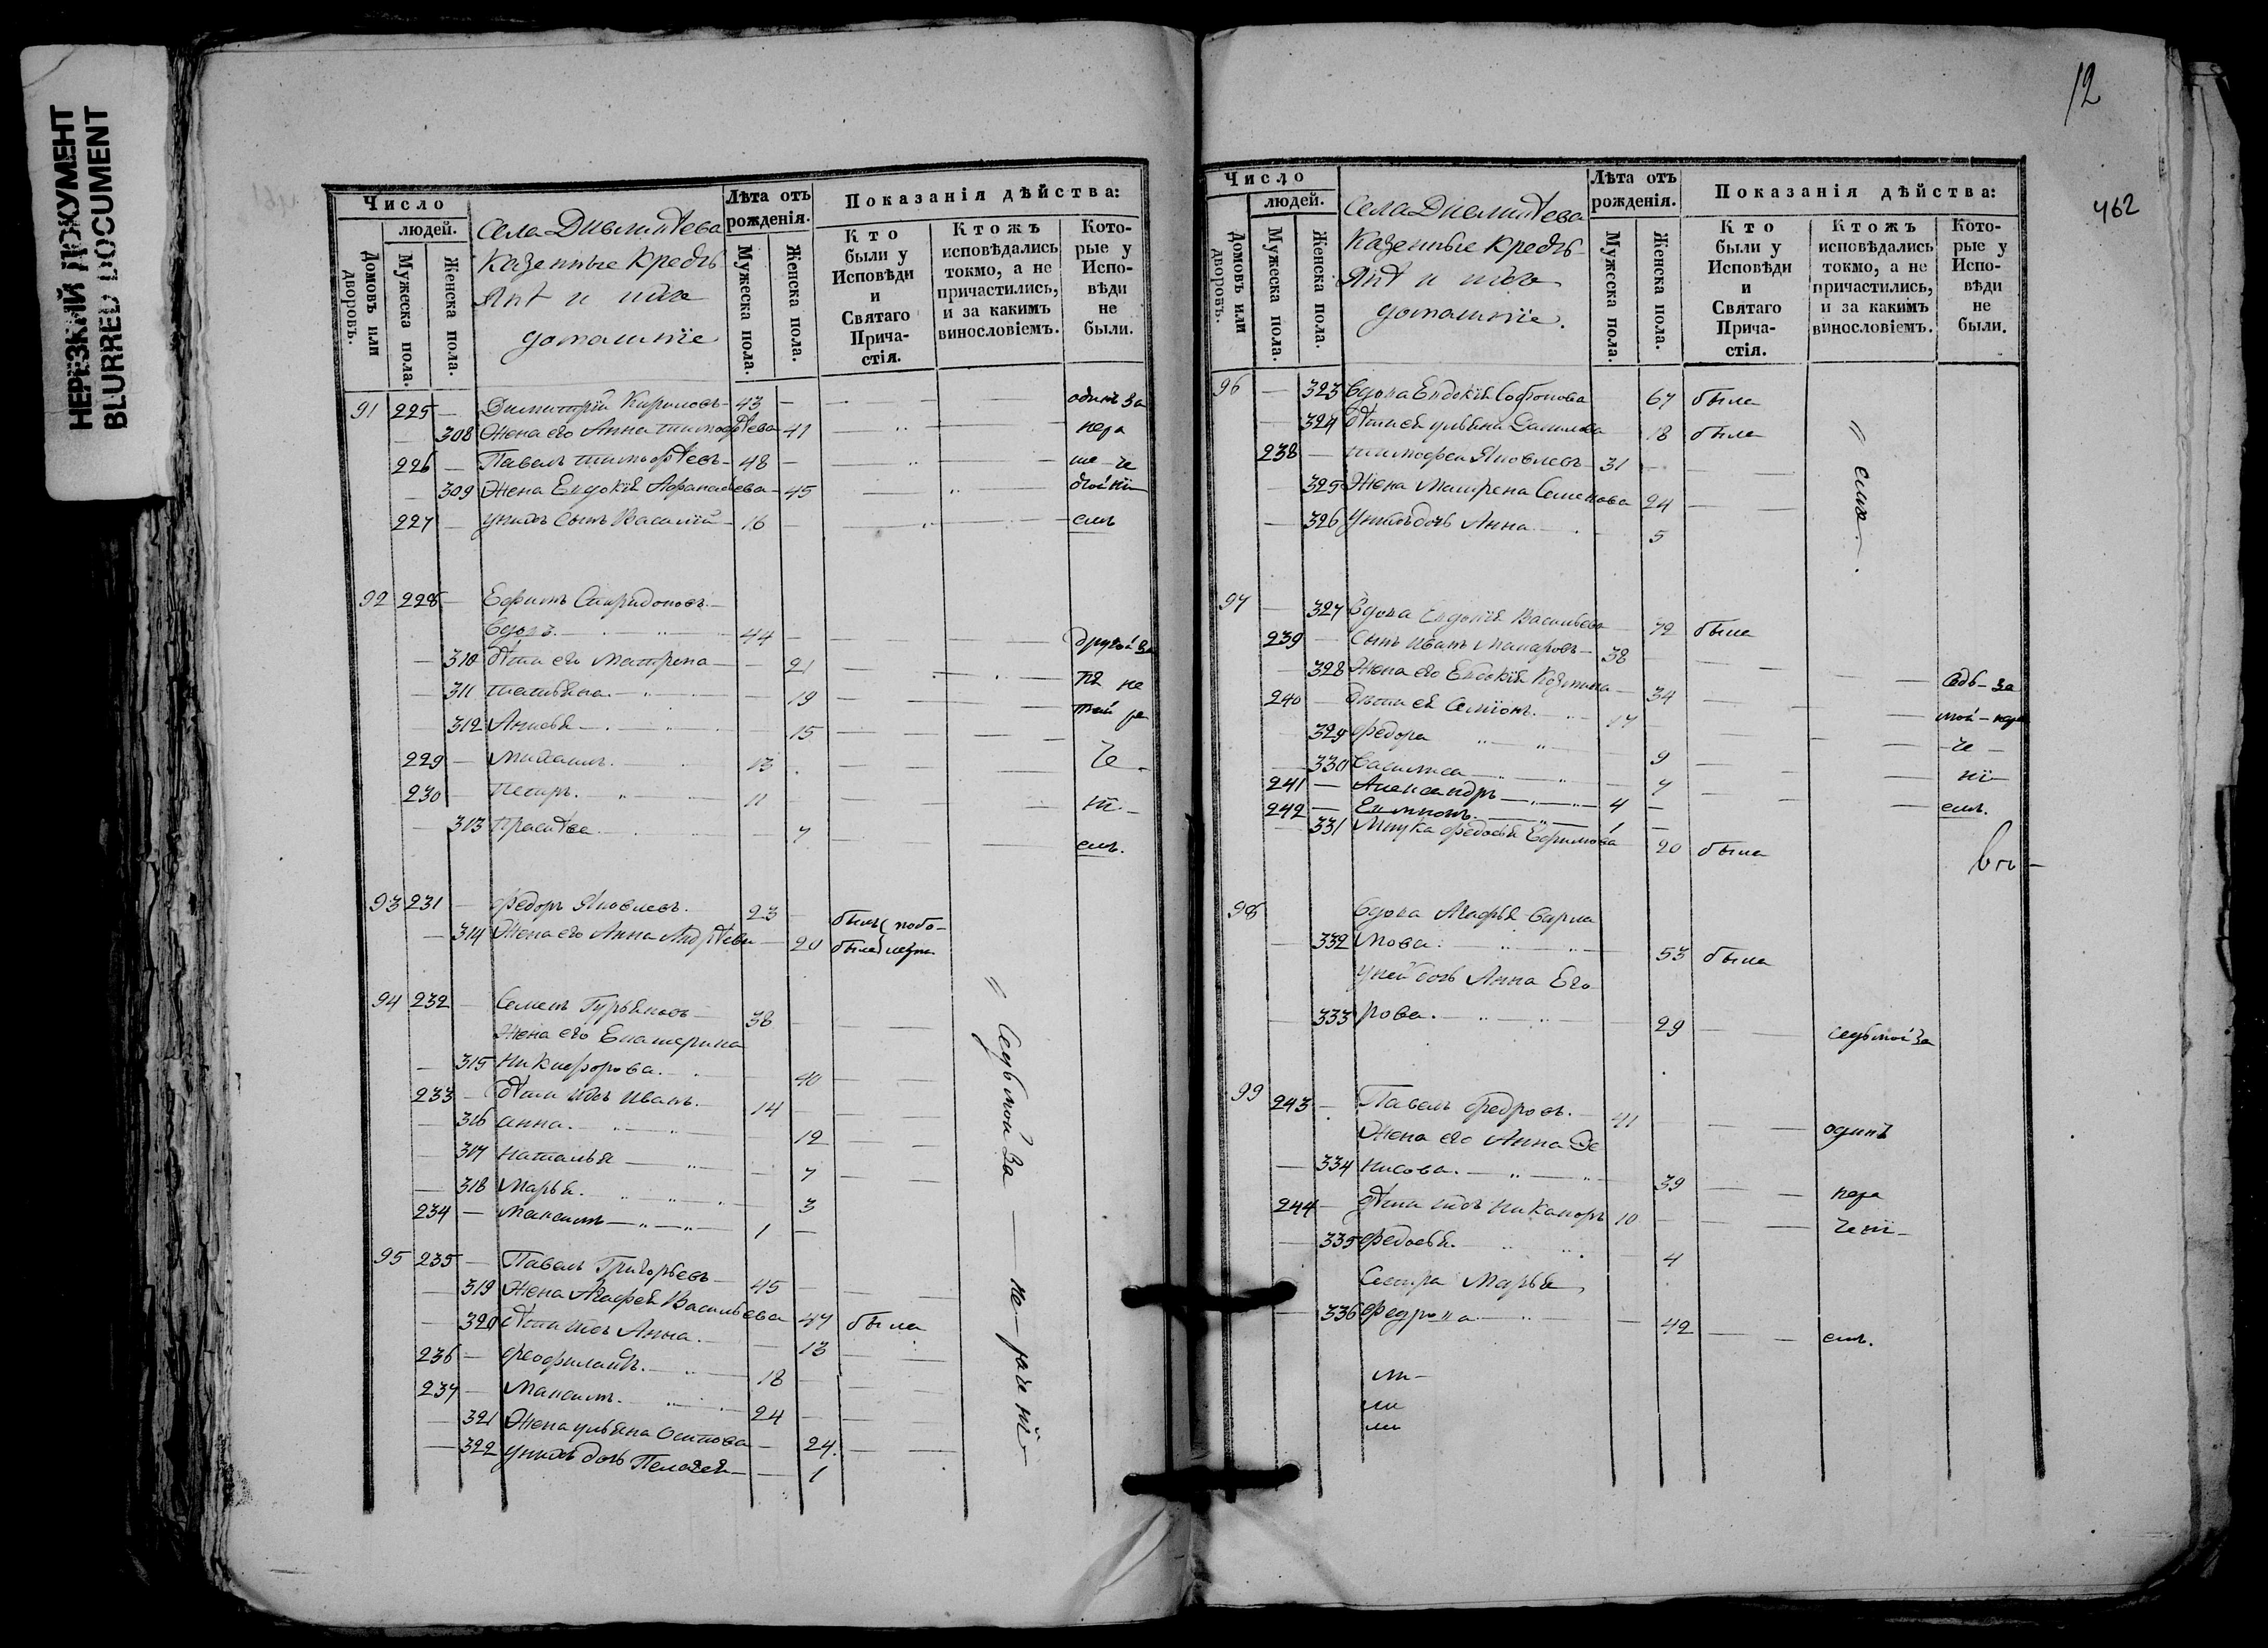 НЕРЕЗКИЙ ДОКУМЕНТ
BLURRED DOCUMENT
Число
людей.
Домовъ или дворовъ.
Мужеска пола.
Женска пола.
Села
Казенные Кресть
Янѣ и ихъ
домашніе
Лѣта отъ рожденія.
Мужеска пола.
Женска пола.
Показанія дѣйства:
Кто были у Исповѣди и Святаго Причастія.
Ктожъ исповѣдались токмо, а не причастились, и за какимъ винословіемъ.
Которые у Исповѣди не были.
91 225 — Димитрій Кириловъ — 43 — одинъ за
— 308 Жена его Анна Тимофѣева 41 нера
226 — Павелъ Тимофѣевъ — 48 —
— 309 Жена Евдокія Афанасьева — 45
227 — у нихъ сынъ Василій — 16 — емъ
92 228 — Ефимъ Спиридоновъ —
вдовъ. 44 — другой за
— 310 дѣти его Матрена — 21
— 311 Татьяна. 19
— 312 Анисья — 15
229 — Михаилъ. 13 че —
230 — Петръ. 11 ні —
— 313 7 емъ.
93 231 — Федоръ Яковлевъ. 23 былъ
— 314 Жена его Анна Андрѣева — 20 была
94 232 — Семенъ Гурьяновъ — 38
Жена его Екатерина
— 315 Никифорова. 40
233 — дѣти ихъ Иванъ. 14
— 316 Анна. 12
— 317 Наталья — 7
— 318 Марья. 3
234 — Максимъ — 1 —
95 235 — Павелъ Григорьевъ — 45
— 319 Жена Агафья Васильева 47 была
— 320 дѣти ихъ Анна. — 13
236 — Феофилактъ. 18
237 — Максимъ. 24
— 321 Жена ульяна Осипова — 24.
— 322 у нихъ дочь Пелагея — 1
" Седьмой за — не — раче ні —
12
462
Число
людей.
Домовъ или дворовъ.
Мужеска пола.
Женска пола.
Села
Казенные Кресть
Янѣ и ихъ
домашніе.
Лѣта отъ рожденія.
Мужеска пола.
Женска пола.
Показанія дѣйства:
Кто были у Исповѣди и Святаго Причастія.
Ктожъ исповѣдались токмо, а не причастились, и за какимъ винословіемъ.
Которые у Исповѣди не были.
96 — 323 вдова Евдокія Софронова 67 была
— 324 дѣти ея ульяна Данилова 18 была
238 — Тимофей Яковлевъ — 31
— 325 Жена Матрена Семенова 24
— 326 у нихъ дочь Анна 5
" емъ.
97 — 327 вдова Евдокія Васильева 72 была
239 — сынъ Иванъ Макаровъ — 38
— 328 Жена его Евдокія Козмина — 34 седь — за
240 — дѣти ея Семіонъ. 17 мой — нера
— 329 Федора 9 че —
— 330 Василиса 7 ні —
241 — Александръ — 4 — емъ.
242 — 1 —
— 331 Внука Федосья Ефимова 20 была
98 вдова Агафья Варла
— 332 мова. 53 была
у ней дочь Анна Его
— 333 рова. 29 седьмой за
99 243 — Павелъ Федровъ. 41 одинъ
Жена его Анна Де
— 334 нисова. 39 нера
244 — дѣти ихъ Никаноръ 10 чені —
— 335 Федосья. 4
Сестра Марья
— 336 Федрова 42 емъ.